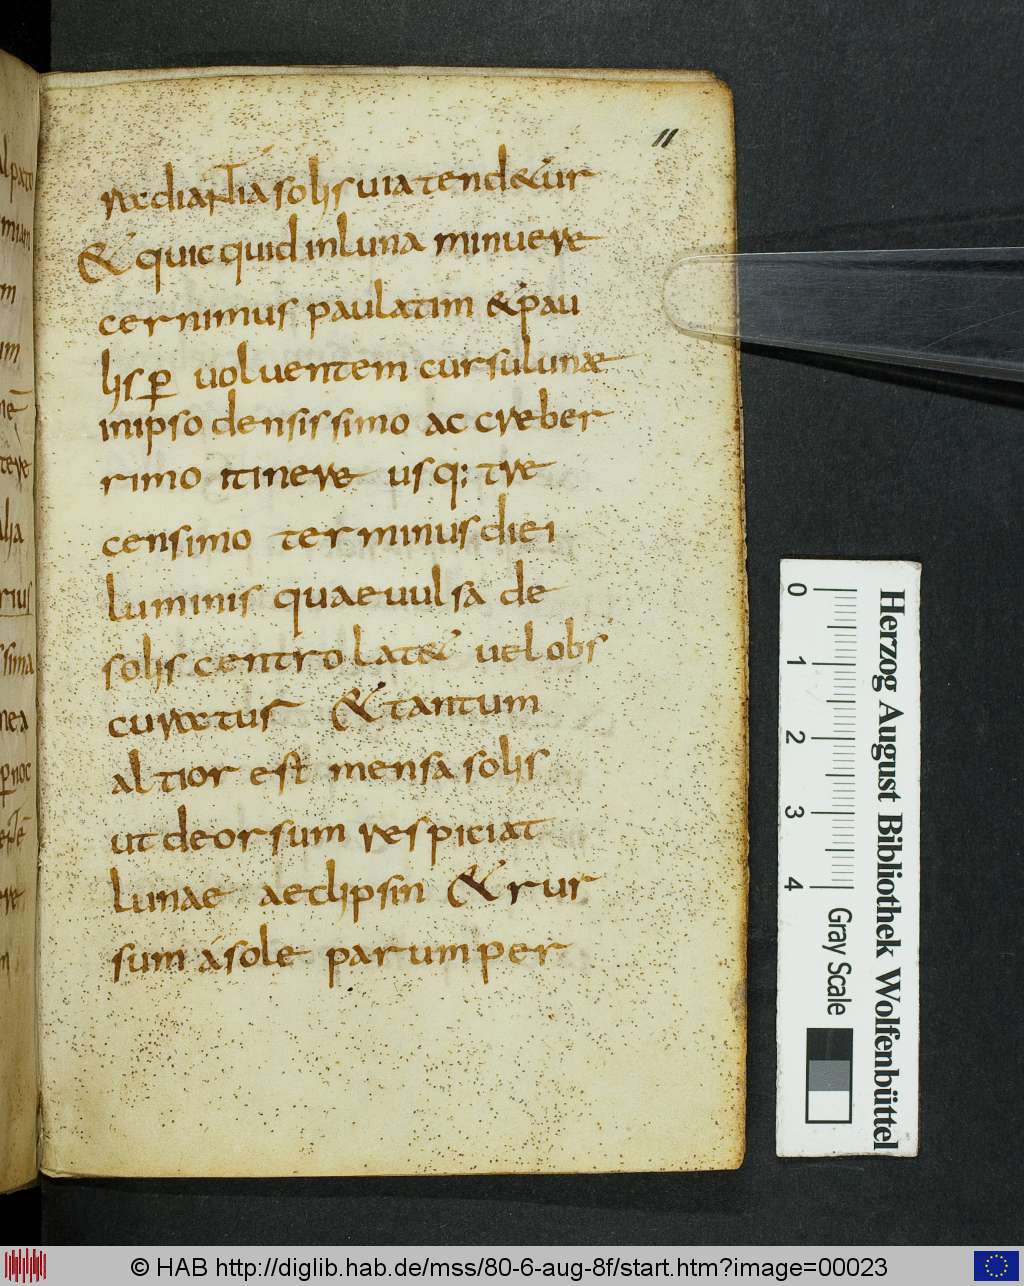 11
radiantia solis uia tend&ur
& quic quid in luna minuere
cernimus paulatim & pau
lis ꝑ uoluentem cursu lunae
in ipso densissimo ac creber
rimo itinere usq; tre
censimo terminus diei
luminis quae uulsa de
solis centro lat& uel obs
curatus & tantum
altior est mensa solis
ut deorsum respiciat
lunae aeclipsin & rur
sum á sole parumper
0 1 2 3 4
Gray Scale
Herzog August Bibliothek Wolfenbüttel
© HAB http://diglib.hab.de/mss/80-6-aug-8f/start.htm?image=00023